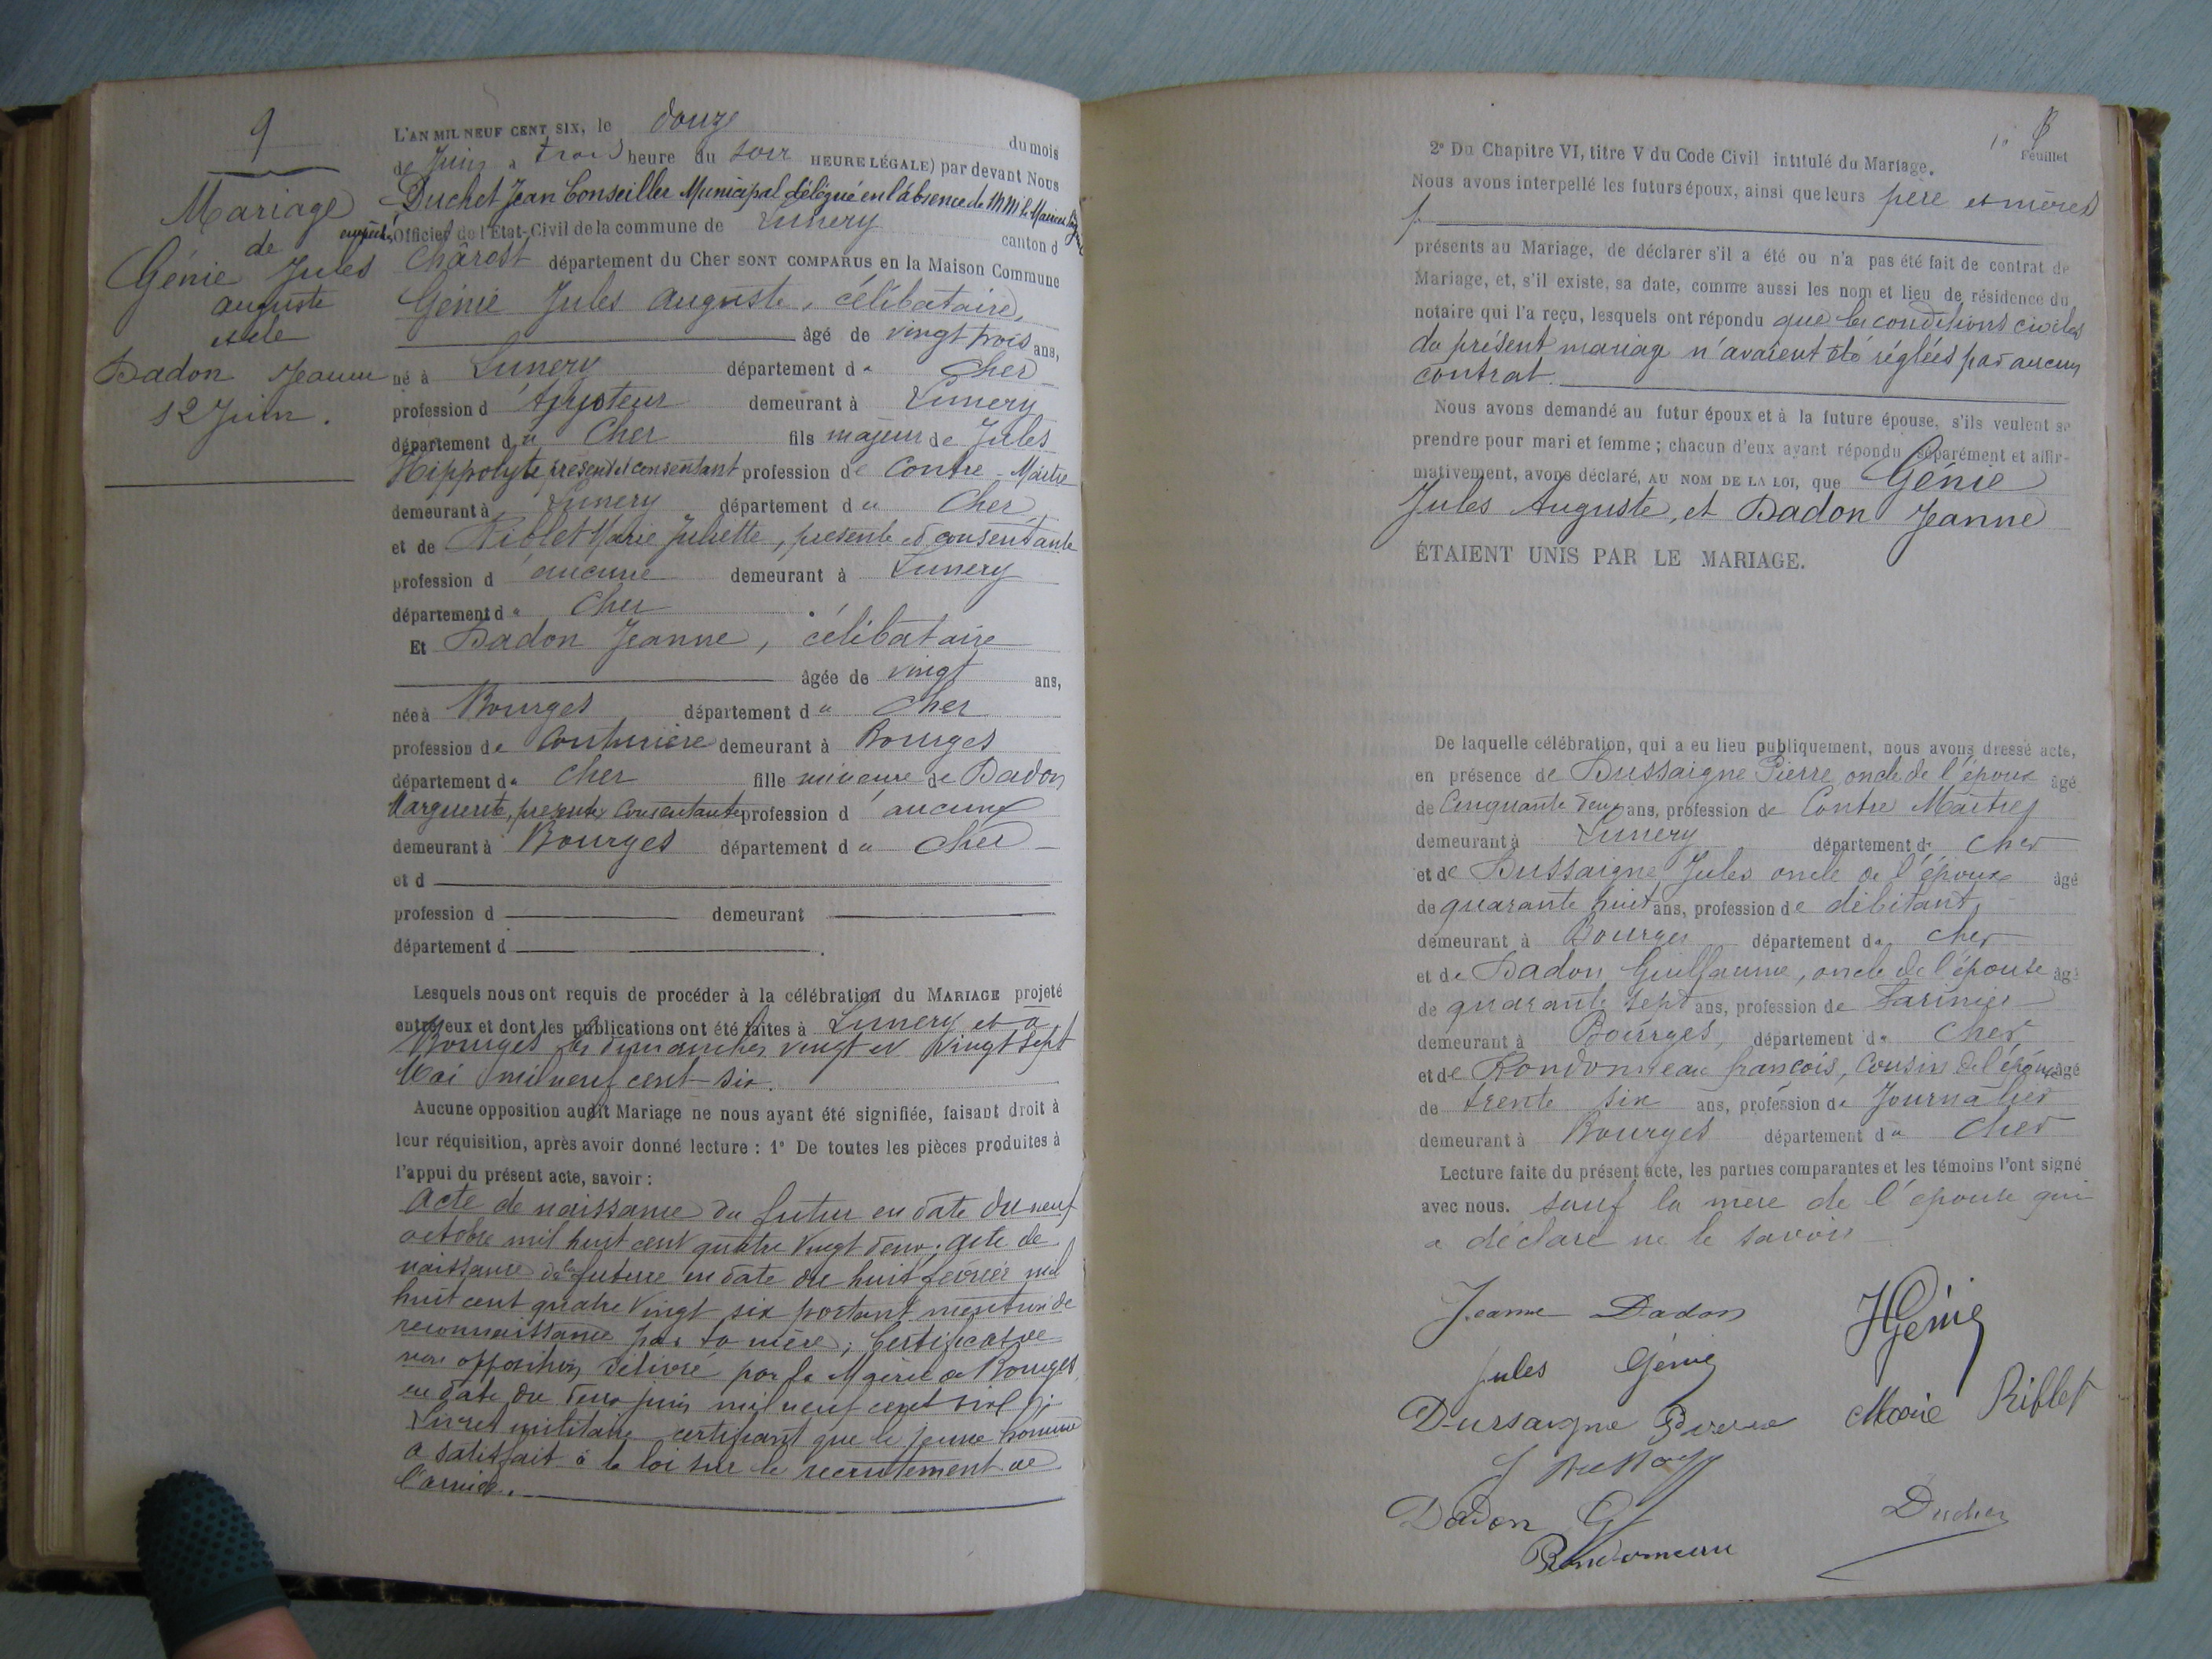 9
Mariage
de
Génie Jules
auguste
et de
Dadon Jeanne
12 Juin.
L'AN MIL NEUF CENT SIX, le douze du mois
de Juin à trois heure du soir HEURE LÉGALE) par devant Nous
Duchet Jean Conseiller Municipal délégué en l'absence de MM le Maire
empêchés Officier de l'État-Civil de la commune de Lunery canton d
Chârost département du Cher SONT COMPARUS en la Maison Commune
Génie Jules auguste, célibataire,
âgé de vingt trois ans,
né à Lunery département du Cher
profession d'Ajusteur demeurant à Lunery
département du Cher fils majeur de Jules
Hippolyte présent et consentant profession de Contre-Maître
demeurant à Lunery département du Cher
et de Riblet Marie Juliette, présente et consentante
profession d'aucune demeurant à Lunery
département du Cher
Et Dadon Jeanne, célibataire
âgée de vingt ans,
née à Bourges département du Cher
profession de Couturière demeurant à Bourges
département du Cher fille mineure de Dadon
Marguerite, présente Consentante profession d'aucune
demeurant à Bourges département du Cher
et d
profession d demeurant
département d
Lesquels nous ont requis de procéder à la célébration du MARIAGE projeté
entre eux et dont les publications ont été faites à Lunery et à
Bourges les dimanches vingt et vingt sept
Mai mil neuf cent six.
Aucune opposition audit Mariage ne nous ayant été signifiée, faisant droit à
leur réquisition, après avoir donné lecture : 1° De toutes les pièces produites à
l'appui du présent acte, savoir :
acte de naissance du futur en date du neuf
octobre mil huit cent quatre vingt deux; acte de
naissance de la future en date du huit février mil
huit cent quatre vingt six portant mention de
reconnaissance par sa mère; Certificat de
non opposition délivré par la Mairie de Bourges
en date du deux juin mil neuf cent six;
Livret militaire certifiant que le jeune homme
a satisfait à la loi sur le recrutement de
l'armée.
Feuillet
2° Du Chapitre VI, titre V du Code Civil intitulé du Mariage.
Nous avons interpellé les futurs époux, ainsi que leurs père et mères
présents au Mariage, de déclarer s'il a été ou n'a pas été fait de contrat de
Mariage, et, s'il existe, sa date, comme aussi les nom et lieu de résidence du
notaire qui l'a reçu, lesquels ont répondu que les conditions civiles
du présent mariage n'avaient été réglées par aucun
contrat.
Nous avons demandé au futur époux et à la future épouse, s'ils veulent se
prendre pour mari et femme ; chacun d'eux ayant répondu séparément et affir-
mativement, avons déclaré, AU NOM DE LA LOI, que Génie
Jules Auguste, et Dadon Jeanne
ÉTAIENT UNIS PAR LE MARIAGE.
De laquelle célébration, qui a eu lieu publiquement, nous avons dressé acte,
en présence de Dussaigne Pierre oncle de l'époux âgé
de Cinquante deux ans, profession de Contre Maître
demeurant à Lunery département du Cher
et de Dussaigne Jules oncle de l'époux âgé
de quarante huit ans, profession de débitant,
demeurant à Bourges département du Cher
et de Dadon Guillaume, oncle de l'épouse âgé
de quarante sept ans, profession de Farinier
demeurant à Bourges, département du Cher
et de Rondonneau françois, Cousin de l'épouse âgé
de trente six ans, profession de Journalier
demeurant à Bourges département du Cher
Lecture faite du présent acte, les parties comparantes et les témoins l'ont signé
avec nous. sauf la mère de l'épouse qui
a déclaré ne le savoir
Jeanne Dadon
HGénie
Jules Génie
Dussaigne Pierre
Marie Riblet
Dadon G
Duchet
Rondonneau